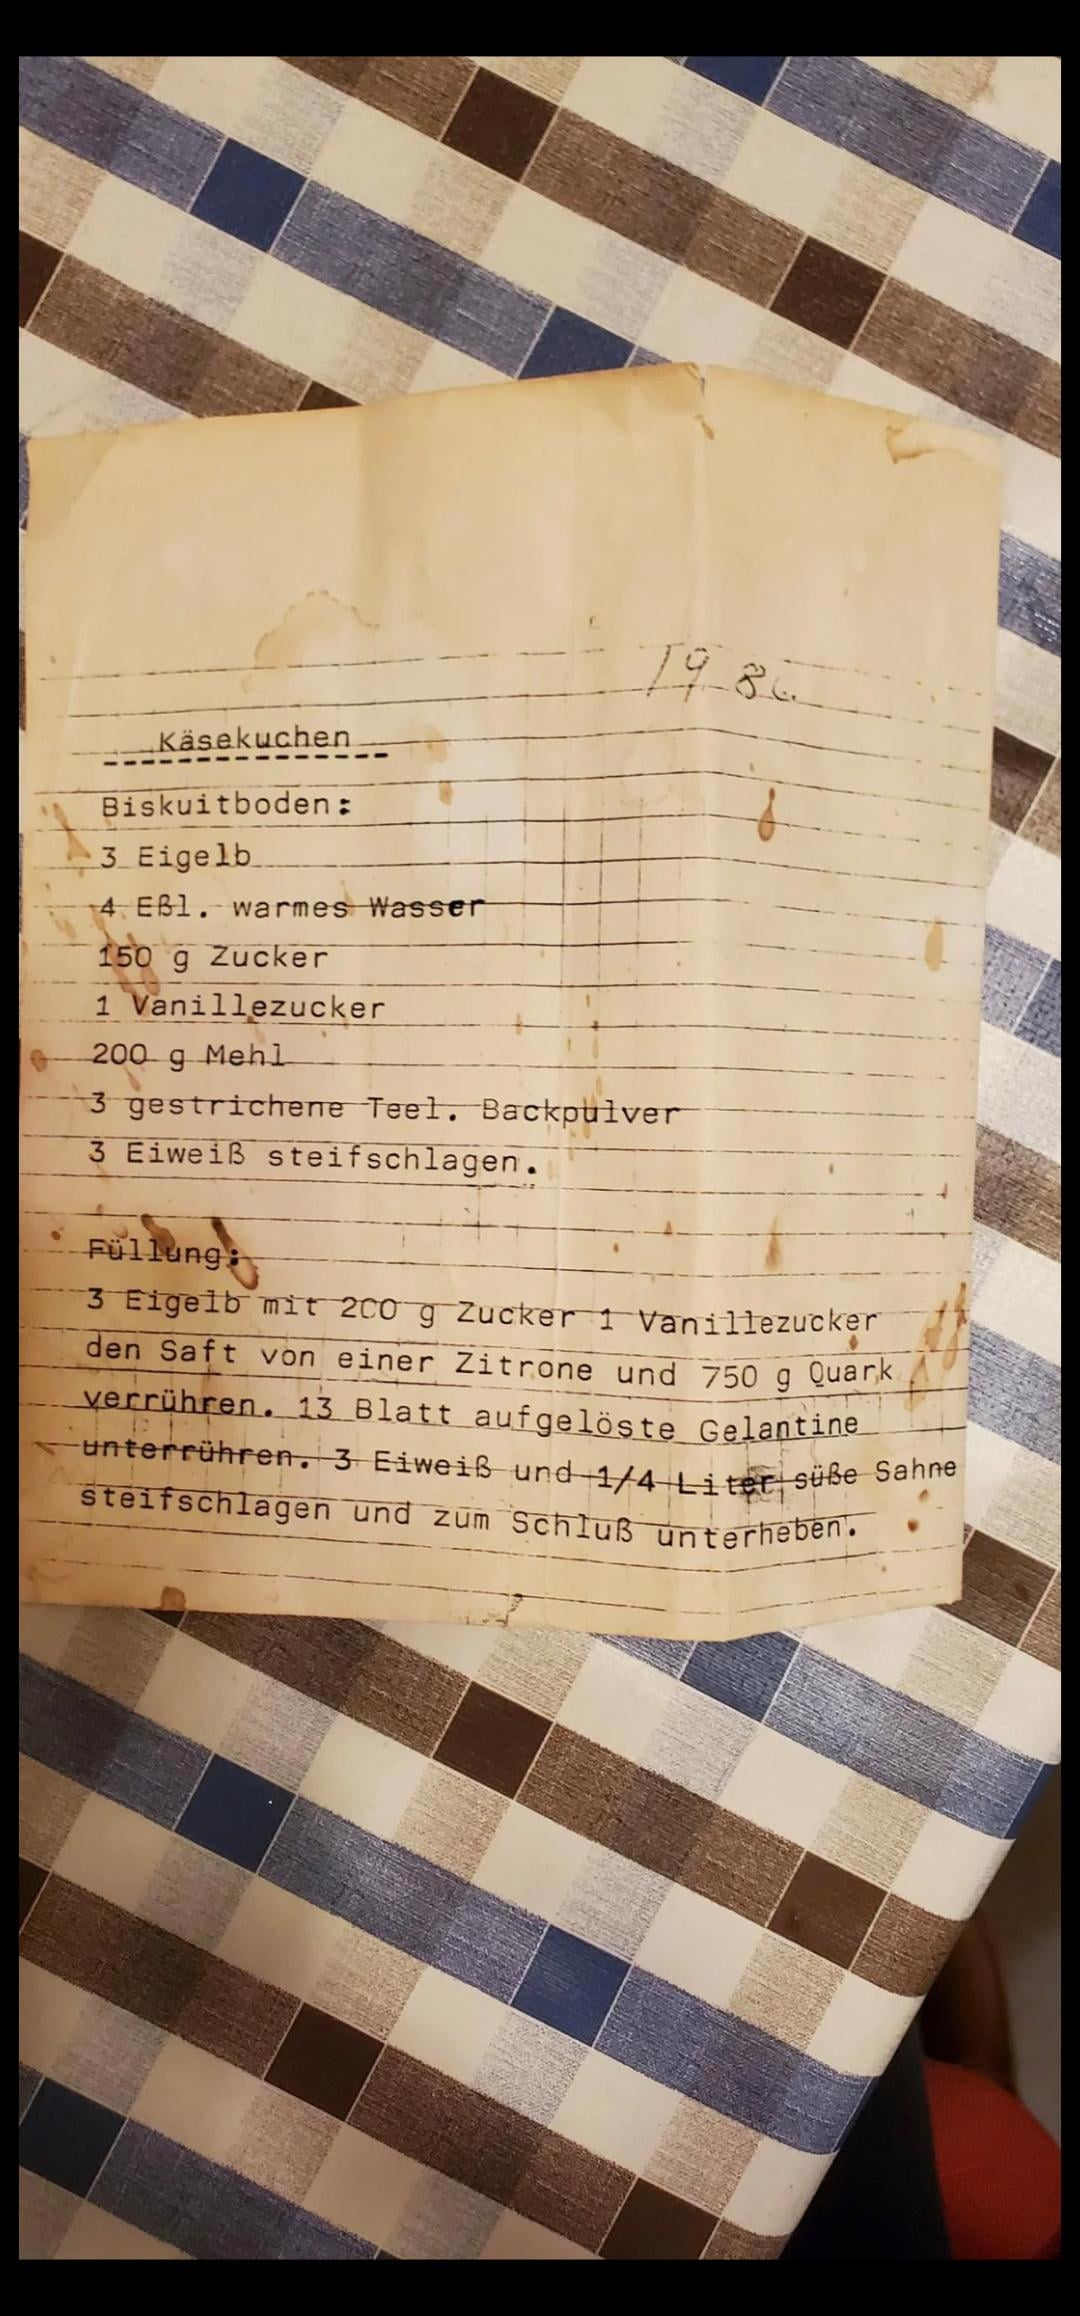 Käsekuchen
Biskuitboden:
3 Eigelb
4 Eßl. warmes Wasser
150 g Zucker
1 Vanillezucker
200 g Mehl
3 gestrichene Teel. Backpulver
3 Eiweiß steifschlagen.
Füllung:
3 Eigelb mit 200 g Zucker 1 Vanillezucker
den Saft von einer Zitrone und 750 g Quark
verrühren. 13 Blatt aufgelöste Gelantine
unterrühren. 3 Eiweiß und 1/4 Liter süße Sahne
steifschlagen und zum Schluß unterheben.